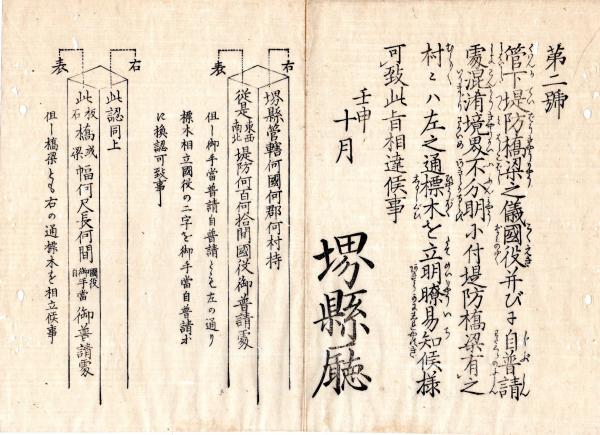 第二號
管下堤防橋梁之儀國役并びニ自普請
處混淆境界不分明ニ付堤防橋梁有之
村々ハ左之通標木を立明瞭易知候様
可致此旨相達候事
壬申
十月
堺縣廳
右
表
堺縣管轄何國何郡何村持
從是東西南北堤防何百何拾間國役御普請處
但し御手當普請自普請とも左の通り
標木相立國役の二字を御手當自普請等
に換認可致事
右
表
此認同上
此板石橋或梁幅何尺長何間國役御手當自御普請處
但し橋梁とも右の通標木を相立候事